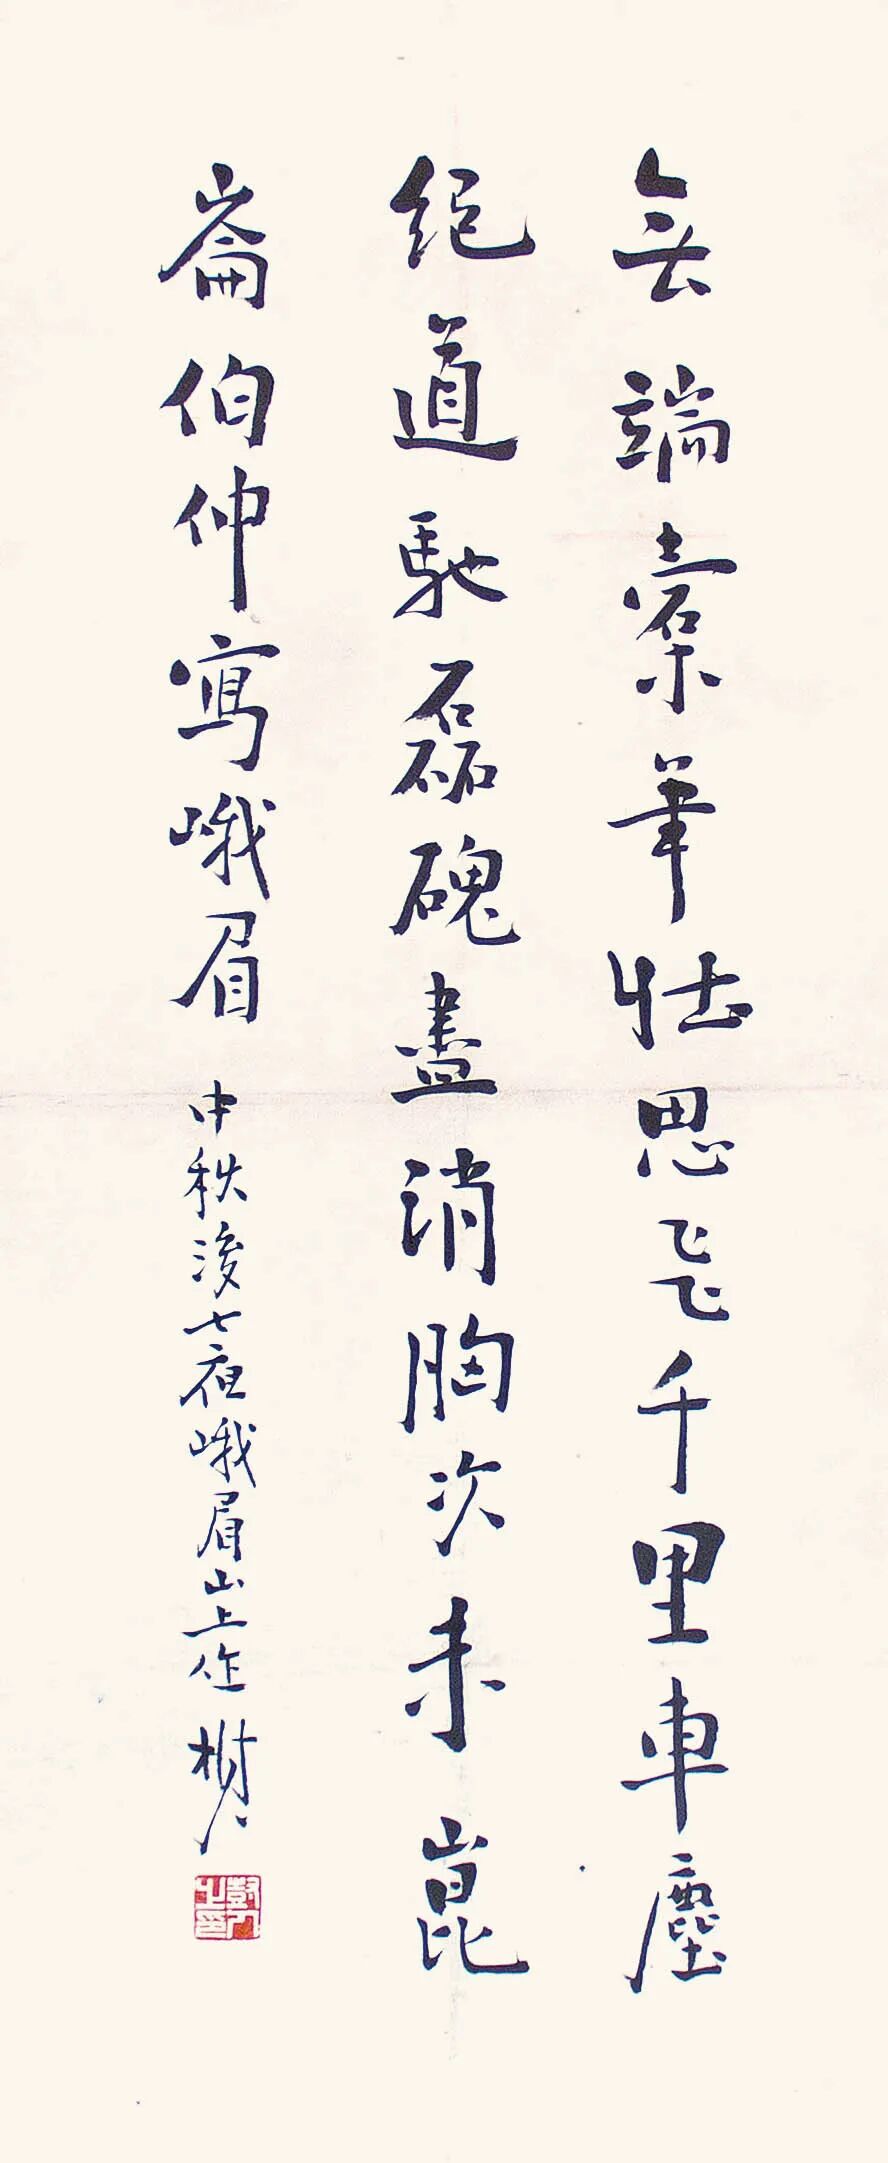 无端橐筆壯思飛千里車塵
絕道馳磊磈盡消胸次未崑
崙伯仲寫峨眉 中秋後七夜峨眉山上作 樹人